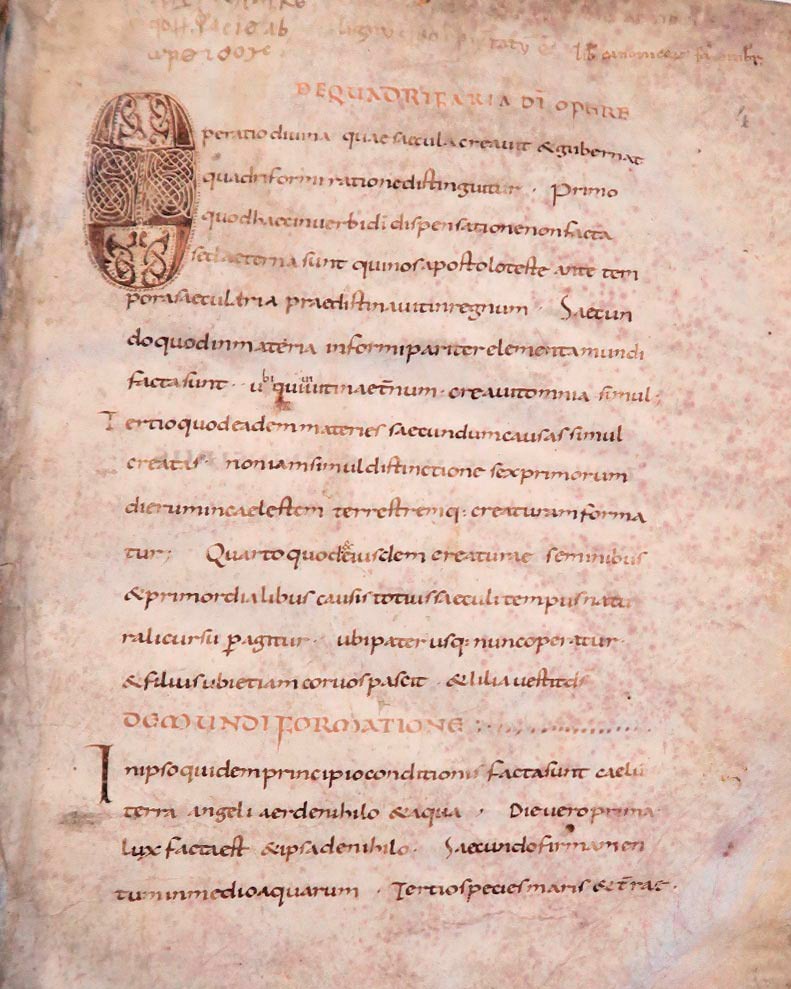 DE QUADRIFARIA DĪ OPERE
Operatio diuina quae saecula creauit & gubernat
quadriformi ratione distinguitur · Primo
quod haec in uerbi di dispensatione non facta
sed aeterna sunt qui nos apostolo teste ante tem
pora saecularia praedistinauit in regnum · Saecun
do quod in materia informi pariter elementa mundi
facta sunt · ubi qui uiuit in aet̄num · creauit omnia simul ;
Tertio quod eadem materies saecundum causas simul
creatas · non iam simul distinctione sex primorum
dierum in caelestem terrestremq: creaturam forma
tur ; Quarto quod eiusdem creaturae seminibus
& primordialibus causis totius saeculi tempus natu
rali cursu ꝑagitur · ubi pater usq: nunc operatur ·
& filius ubi etiam coruos pascit · & lilia uestit
DE MUNDI FORMATIONE
In ipso quidem principio conditionis facta sunt caelū
terra angeli aer de nihilo & aqua · Die uero prima
lux facta est & ipsa de nihilo · Saecundo firmamen
tum in medio aquarum · Tertio species maris & t̄rae ·